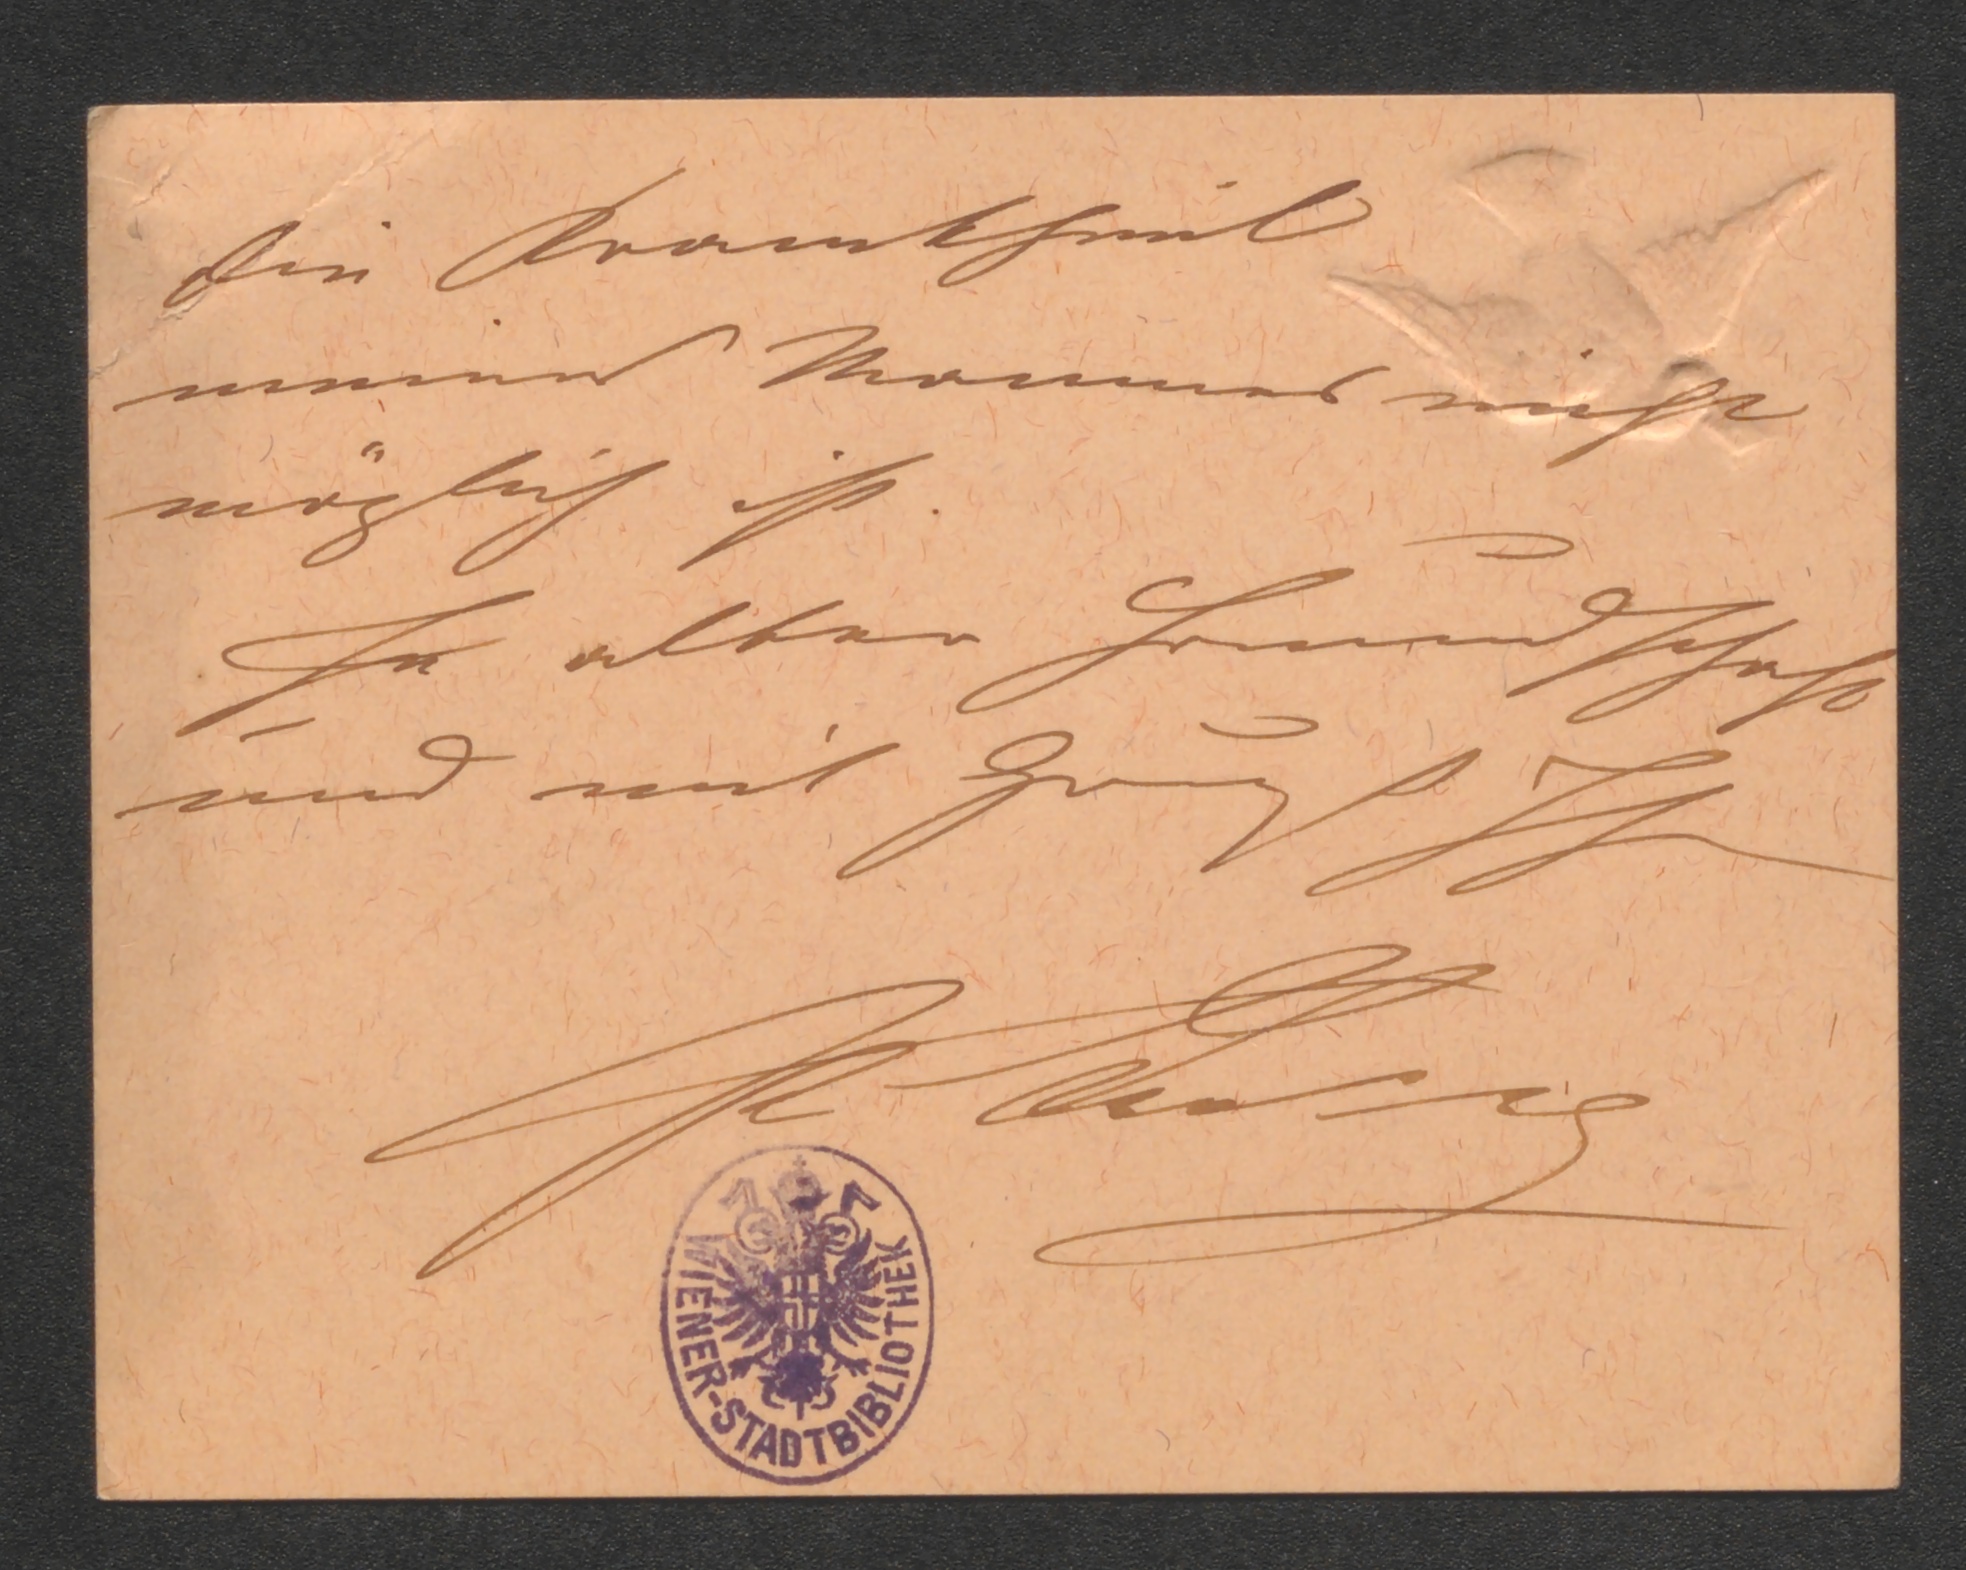 die Krankheit
meines Mannes nicht
möglich ist.
In alter Freundschaft
und mit Gruß Ihr
WIENER-STADTBIBLIOTHEK